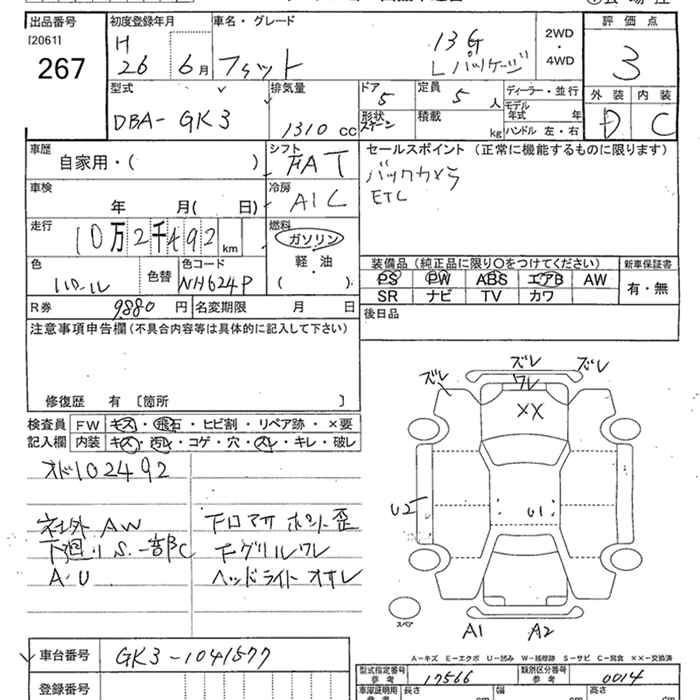 出品番号 初度登録年月 車名・グレード 評価点
[2061]
267 H 26 6月 フィット 13G Lパッケージ 2WD・4WD 3
型式 排気量 ドア 定員 ディーラー・並行 外装 内装
DBA- GK3 1310 cc 5 5人 モデル年式 年 D C
形状 積載 kg ハンドル 左・右
車歴 シフト セールスポイント (正常に機能するものに限ります)
自家用・( ) FAT バックカメラ
車検 冷房 ETC
年 月( 日) A/C
走行 燃料
10万2千492 km ガソリン
軽・油
( )
色 色替 色コード NH624P
装備品 (純正品に限り○をつけてください) 新車保証書
PS PW ABS エアB AW 有・無
SR ナビ TV カワ
R券 9880円 名変期限 月 日 後日品
注意事項申告欄 (不具合内容等は具体的に記入して下さい)
修復歴 有 [箇所 ]
検査員 FW キズ・飛石・ヒビ割・リペア跡・×要
記入欄 内装 キズ・汚れ・コゲ・穴・スレ・キレ・破レ
オド102492
社外 AW
下廻り S. 一部C
A.U
下グリルワレ
ヘッドライト
ズレ ズレ ズレ
ワレ
XX
U2 U1
スペア
A1 A2
A-キズ E-エクボ U-凹み W-補修跡 S-サビ C-腐食 XX-交換済
車台番号 GK3-1041577
型式指定番号 参考 17566 類別区分番号 参考 0014
登録番号
車庫証明用 参考 長さ cm 幅 cm 高さ cm